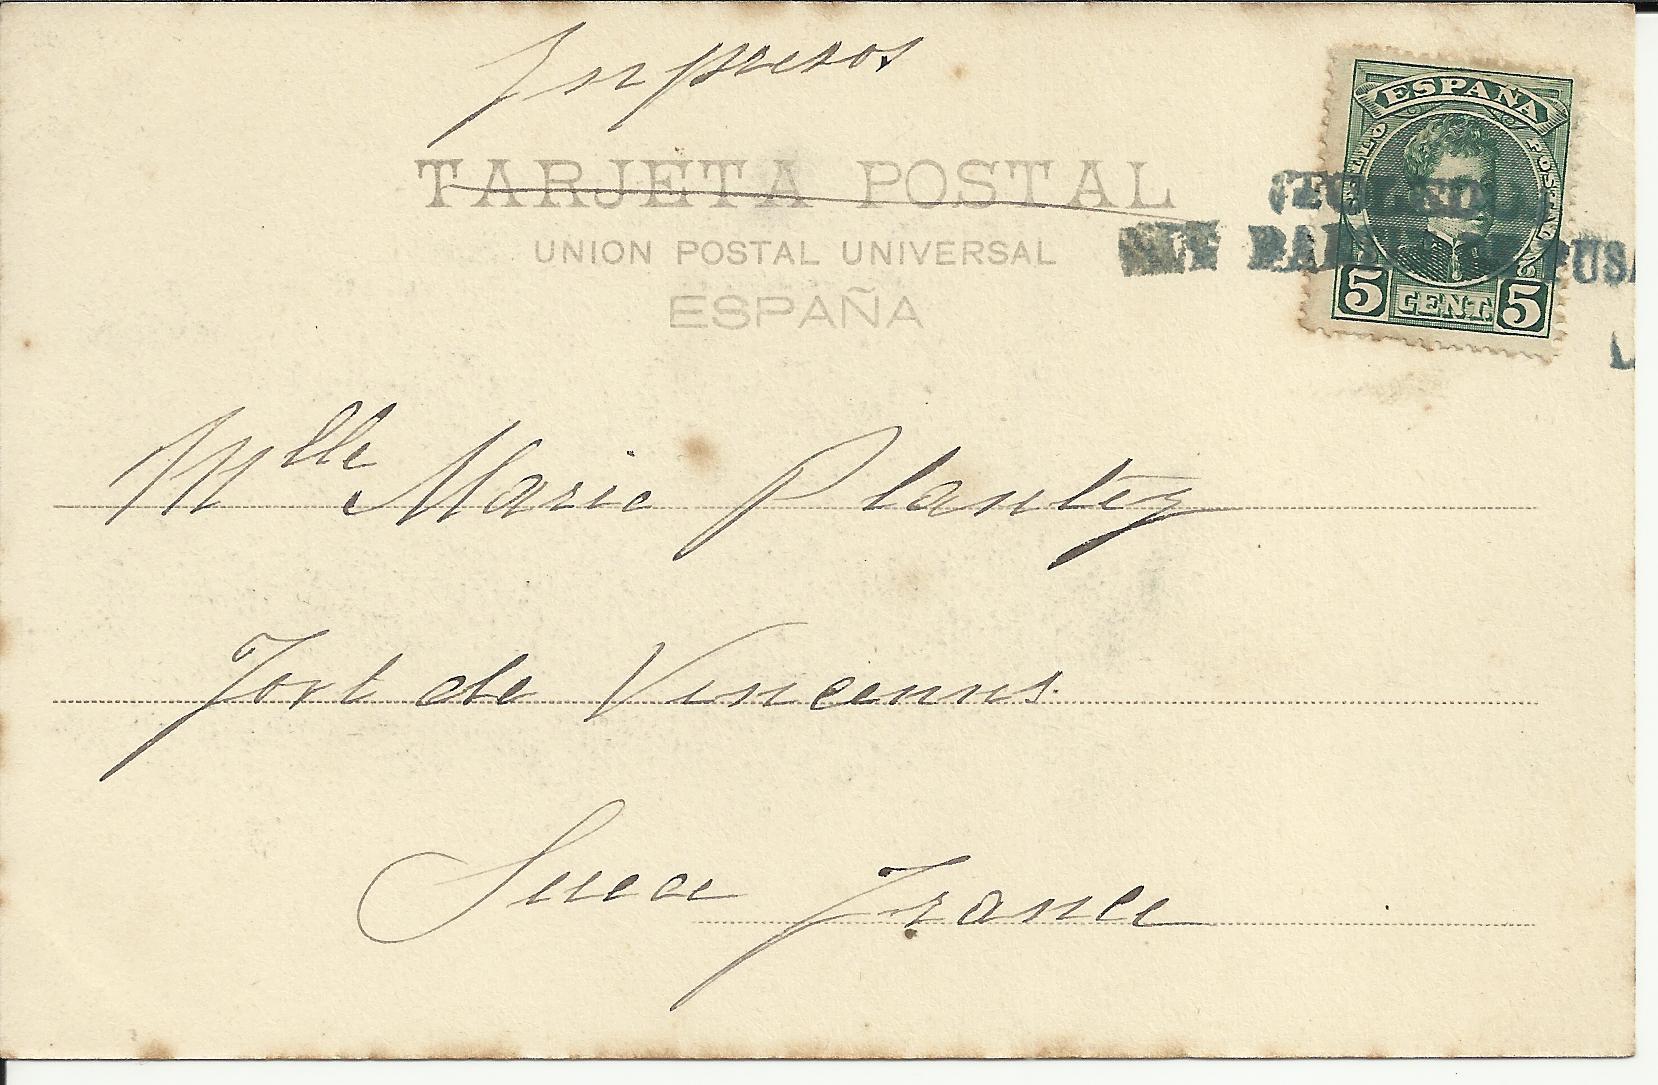 Impresos
TARJETA POSTAL
UNION POSTAL UNIVERSAL
ESPAÑA
ESPAÑA
5 CENT. 5
Mlle Marie Plantey
Fort de Vincennes
France